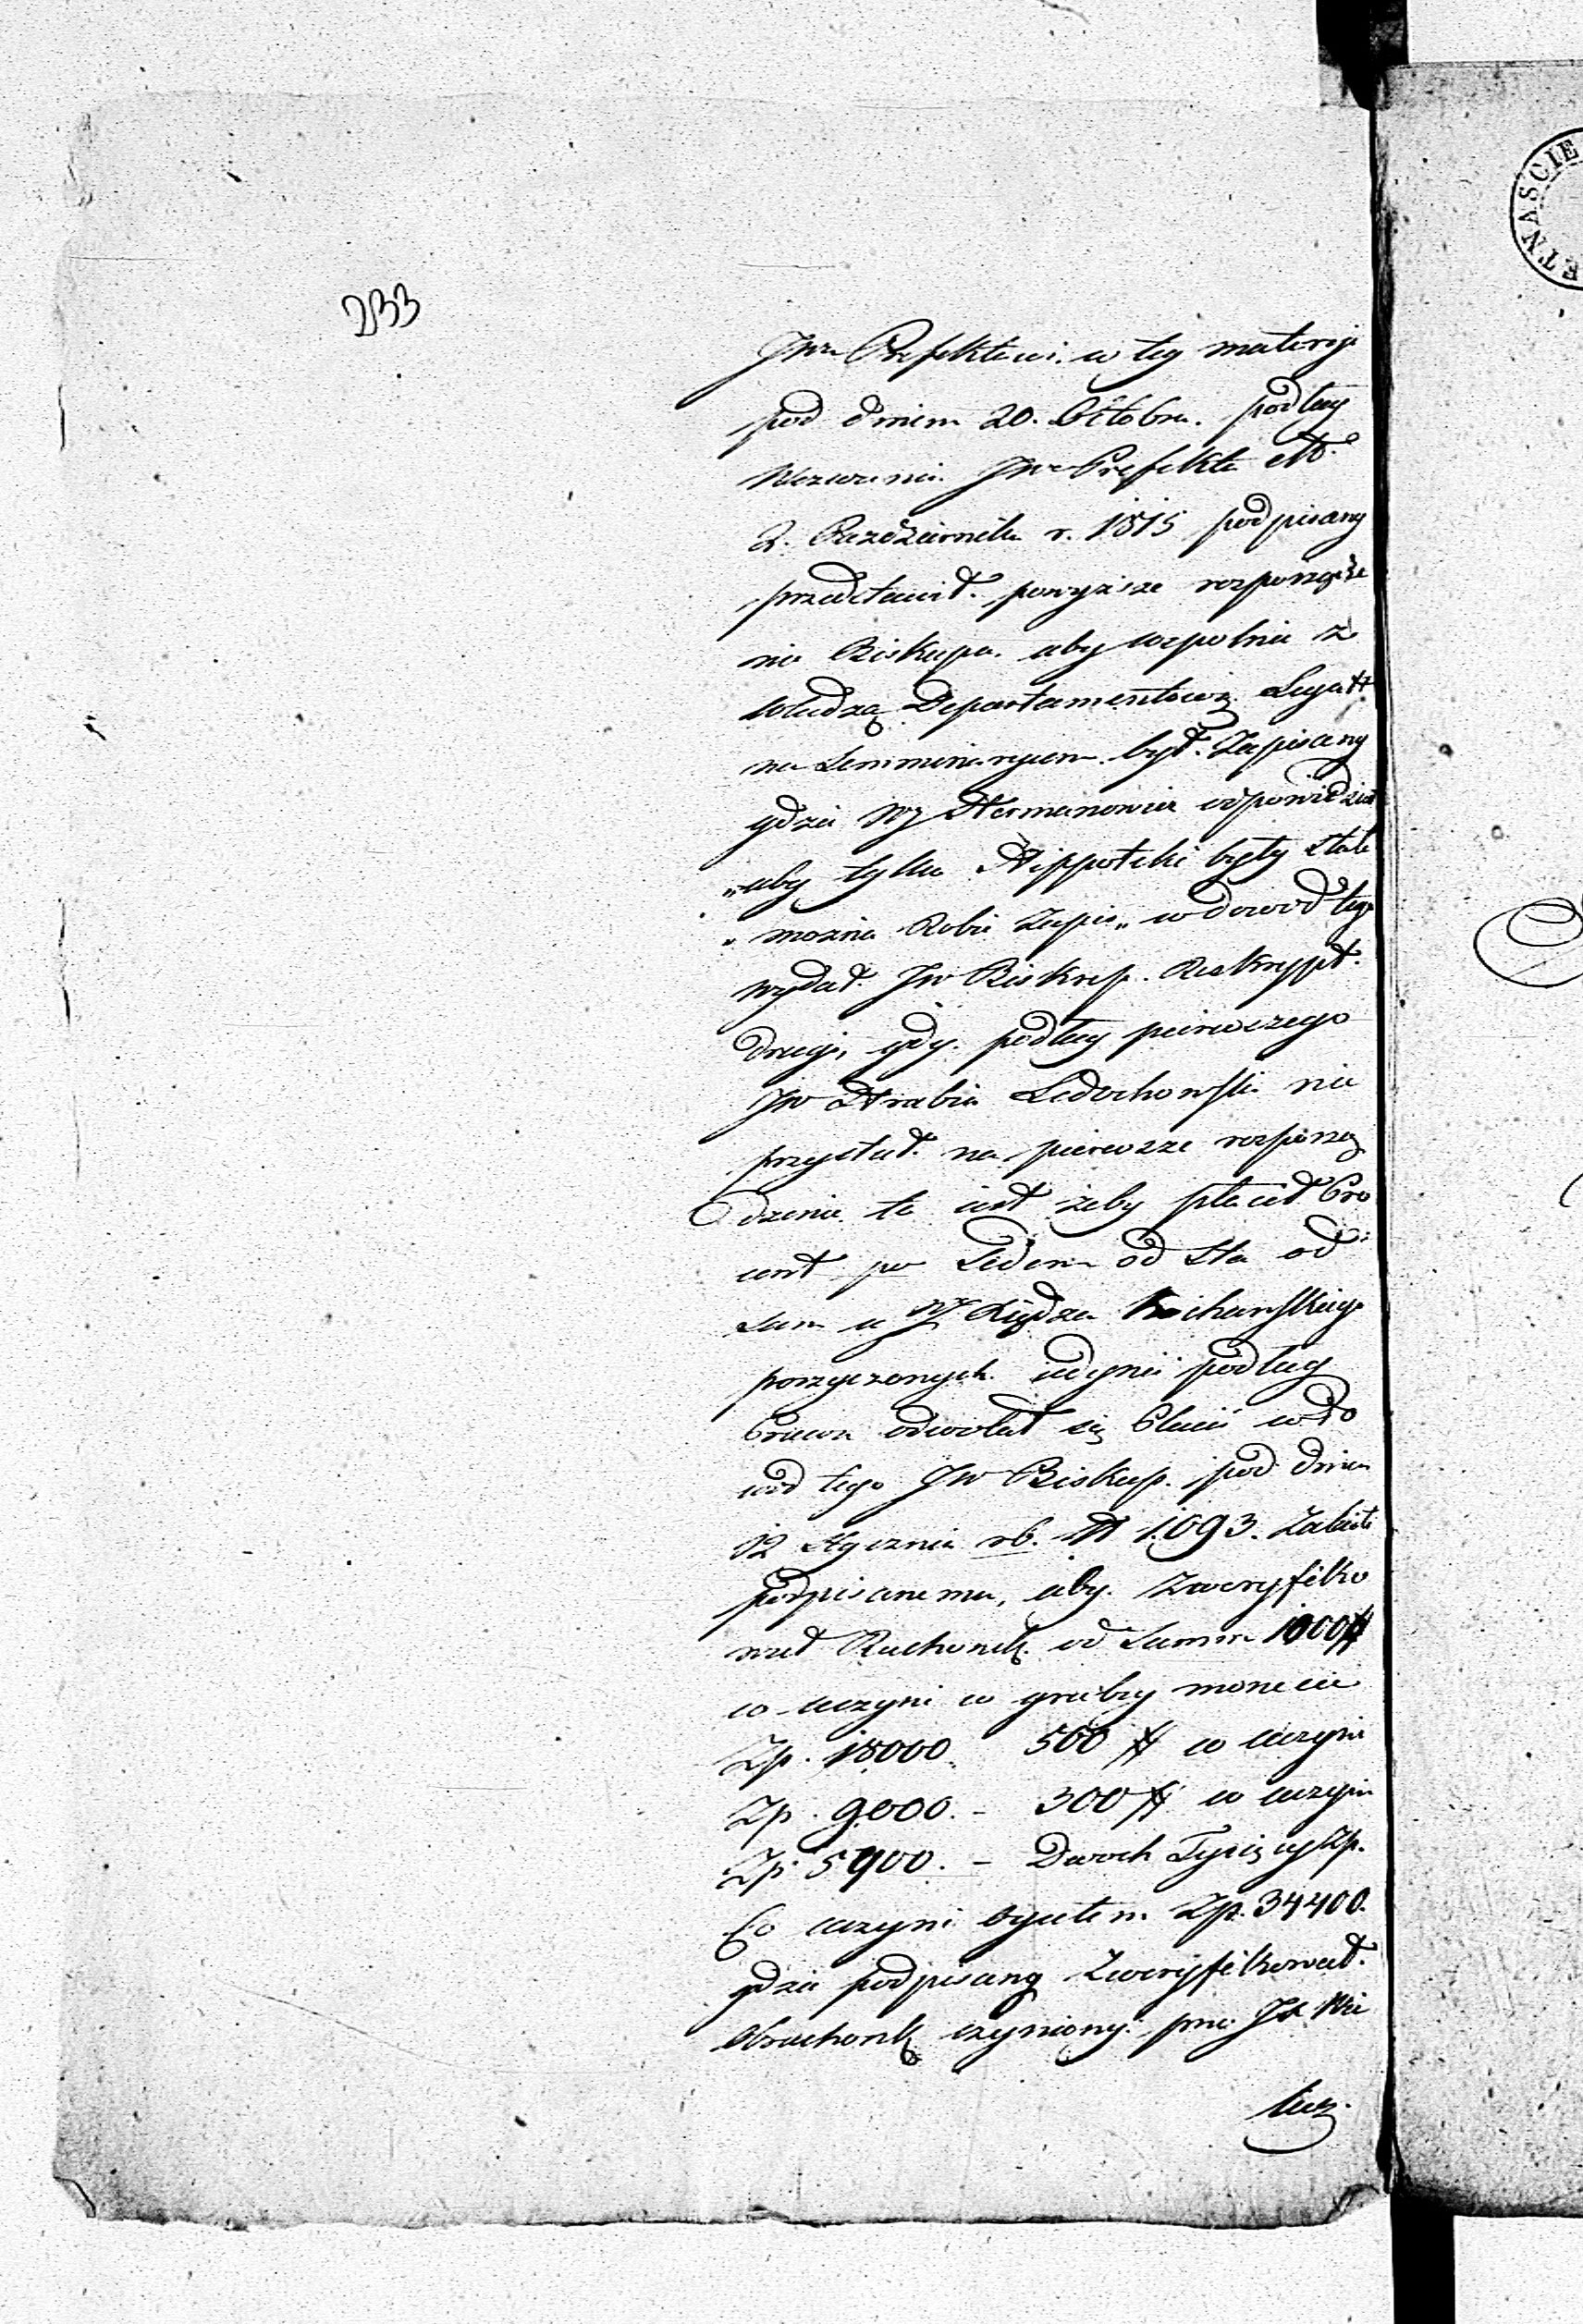 233
JWu Prefektowi w tey materyi
pod dniem 20. Octobra. podług
Wezwania JWo Prefekta dtto
2. Października r. 1815 podpisany
przedstawił powyzsze rozporządze
nie Biskupa. aby wspolnie z
władzą Departamentową Legatt
na Semminaryum był Zapisany
gdzie Wy Hermanowicz odpowiedział
„aby tylko Hippoteki były stałe
„mozna Robic Zapis„ w dowod tego
wydał JW Biskup. Reskrypt.
Drugi, gdy. podług pierwszego
JW Hrabia Ledochowski nie
przystał na pierwsze rozporzą
dzenie to iest zeby płacił Pro
cent po Siedem od Sta od
Sum u Xiędza Kochanskiego
porzyczonych iedynie podług
Prawa odwołał się Płacic w do
wod tego JW Biskup. pod dniem
12 Stycznia rb. N 1093. Zalecił
podpisanemu, aby. Zweryfiko
wał Rachunek od Summ 1000 #
co uczyni w grubey monecie
Zp. 18000. 500 # co uczyni
Zp. 9000. – 300 # co uczyni
Zp. 5400. – Dwoch Tysięcy Zp.
Co uczyni ogułem Zp. 34400.
gdzie podpisany Zweryfikował.
Obrachunek czyniony. prze JX